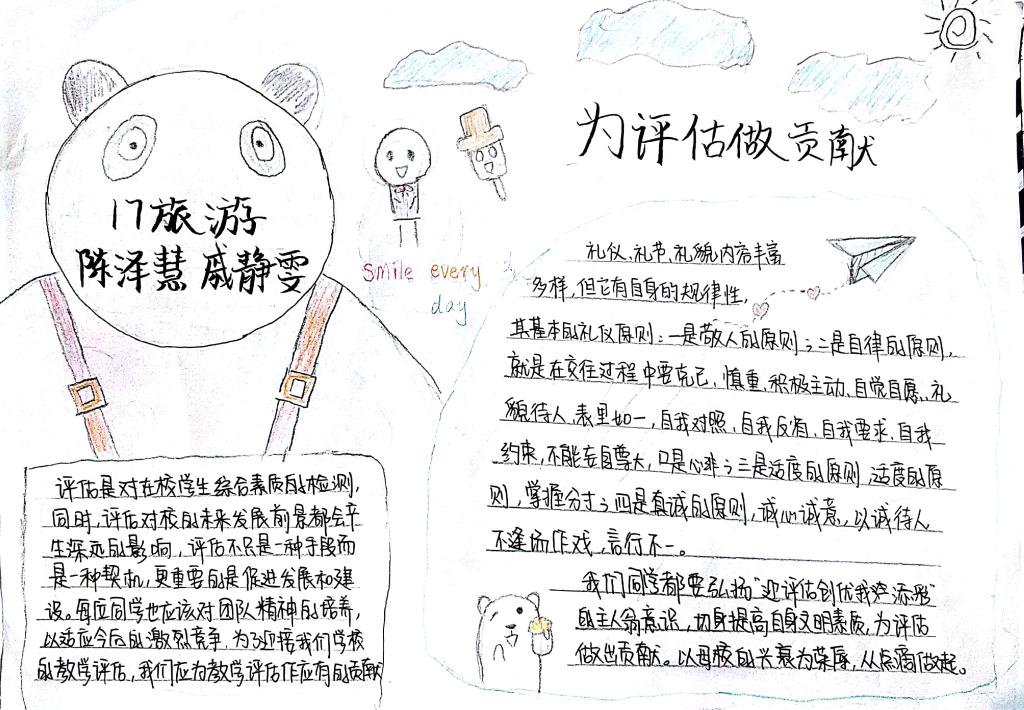 为评估做贡献
17旅游
陈泽慧 戚静雯
Smile every
day
礼仪、礼节、礼貌内容丰富
多样，但它有自身的规律性，
其基本的礼仪原则：一是敬人的原则；二是自律的原则，
就是在交往过程中要克己、慎重、积极主动、自觉自愿、礼
貌待人、表里如一，自我对照、自我反省、自我要求、自我
约束，不能妄自尊大，口是心非；三是适度的原则，适度的原
则，掌握分寸；四是真诚的原则，诚心诚意，以诚待人
不逢场作戏，言行不一。
我们同学都要弘扬"迎评估创优我添彩"
的主人翁意识，切身提高自身文明素质，为评估
做出贡献。以母校的兴衰为荣辱，从点滴做起。
评估是对在校学生综合素质的检测，
同时，评估对校的未来发展前景都会产
生深远的影响，评估不只是一种手段而
是一种契机，更重要的是促进发展和建
设。每位同学也应该对团队精神的培养，
以适应今后的激烈竞争，为了迎接我们学校
的教学评估，我们应为教学评估作应有的贡献